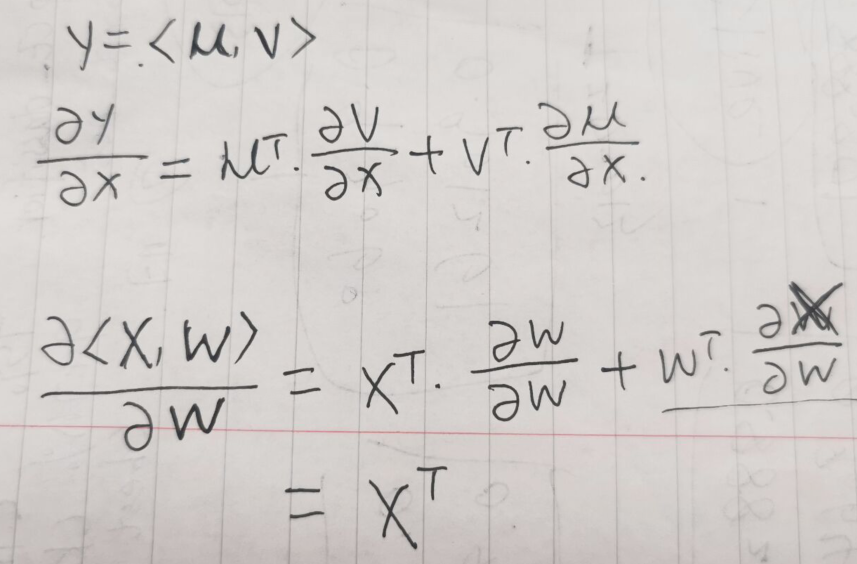 y = <u, v>
∂y/∂x = u^T · ∂v/∂x + v^T · ∂u/∂x .
∂<X, w>/∂w = X^T · ∂w/∂w + w^T · ∂X/∂w
= X^T